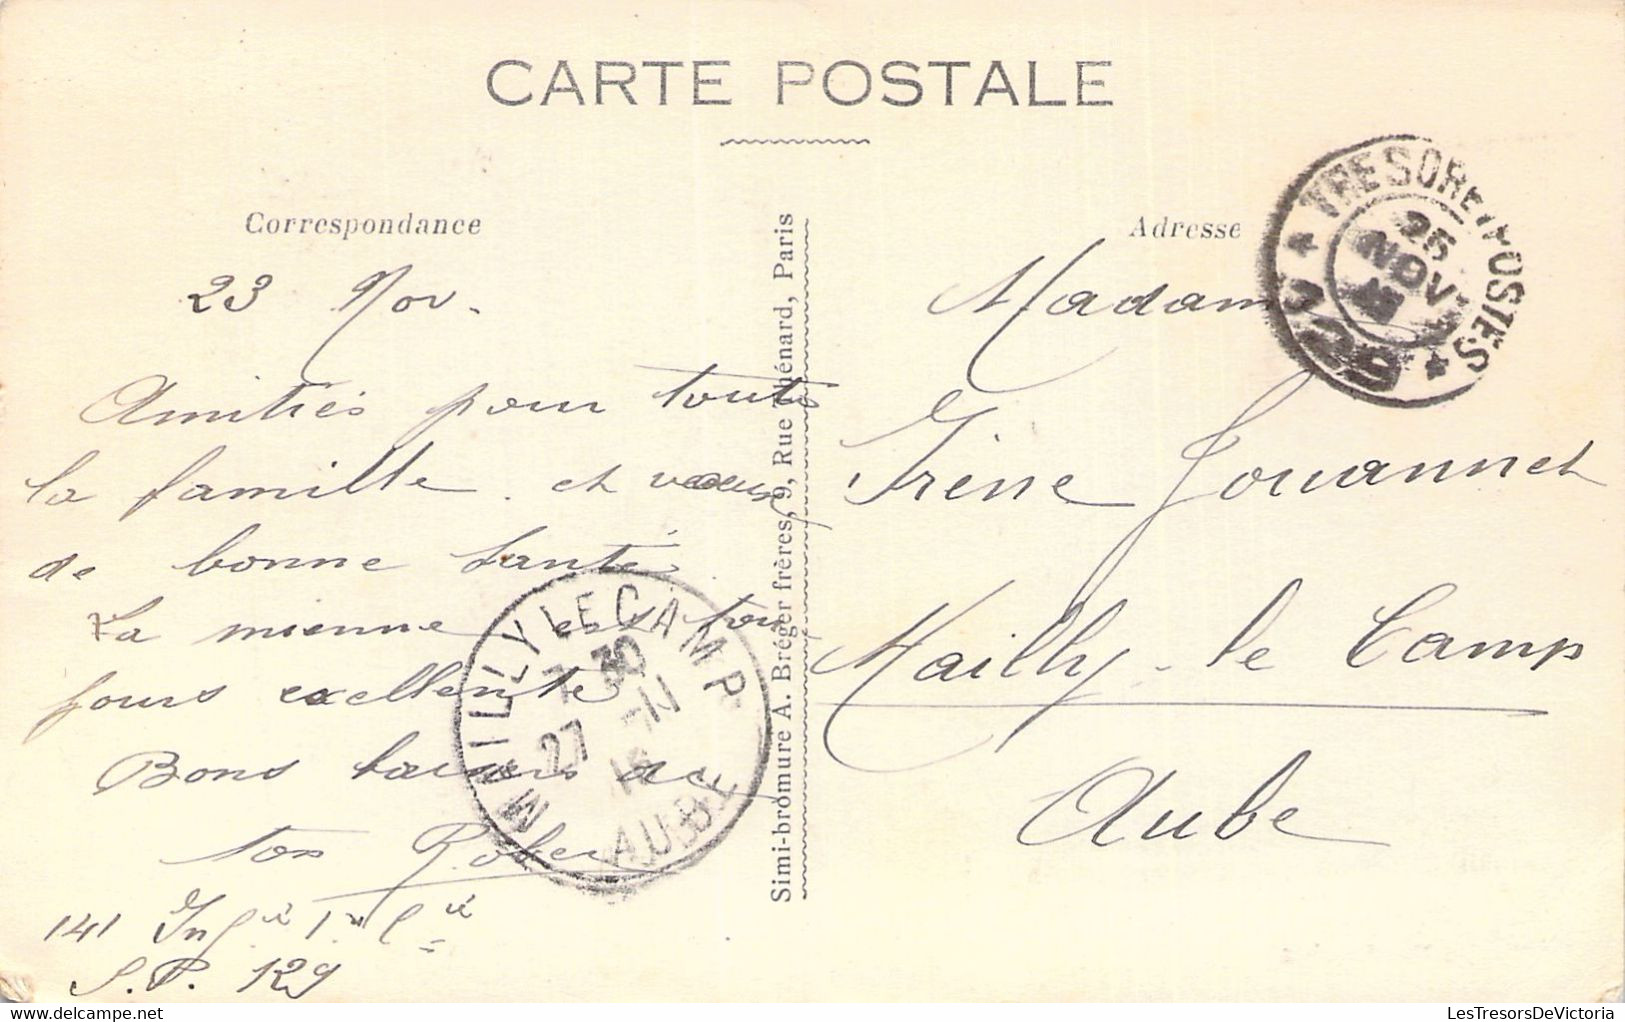 CARTE POSTALE
Correspondance
23 Nov.
Amitiés pour toute
la famille. et
de bonne santé.
La mienne est tou
jours excellente
Bons baisers de
ton Rober
141 Inf^ie 1^re C^ie
S.P. 129
MAILLY LE CAMP
7 30
27 11
AUBE
Simi-bromure A. Bréger frères, 9, Rue Thénard, Paris
Adresse
Madame
Irène Jouannet
Mailly-le Camp
Aube
TRESOR ET POSTES
25
NOV
LesTresorsDeVictoria